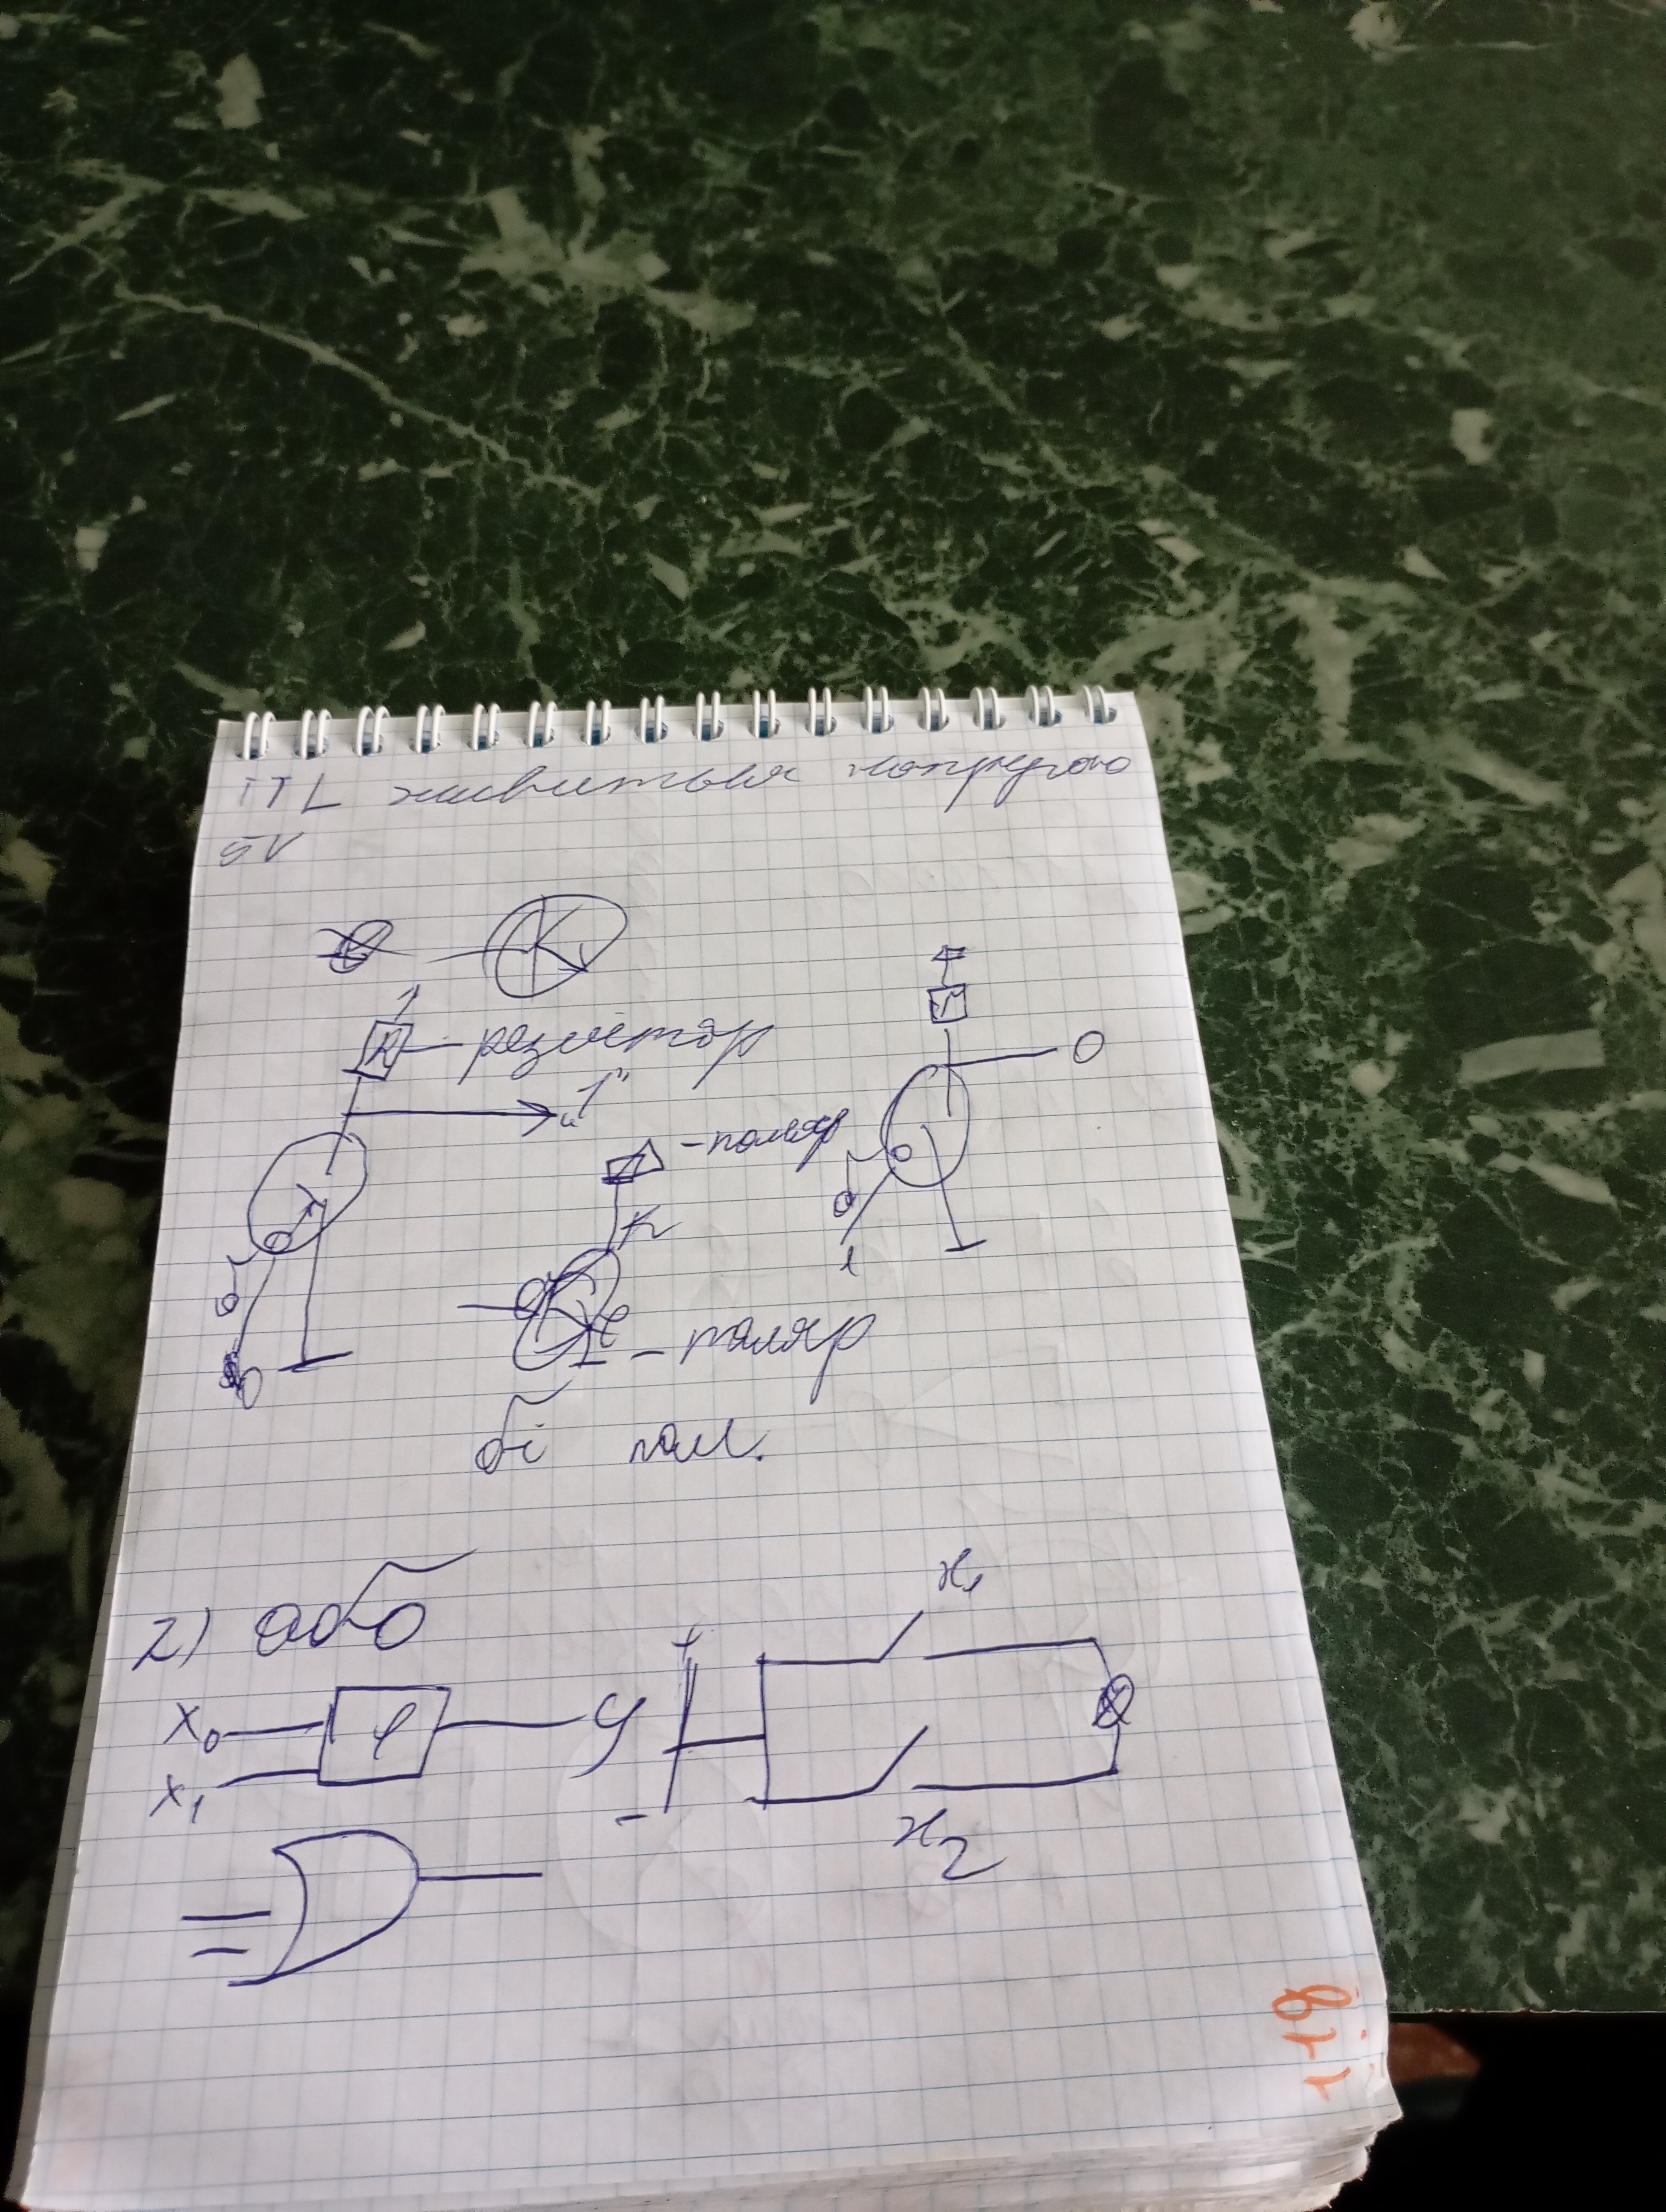 TTL живиться напругою
5V
R – резистор
"1"
0
– поляр
к
б
б
е
1
0
– поляр
бі пол.
2) або
x₁
+
x₀ 1 y
x₁
–
x₂